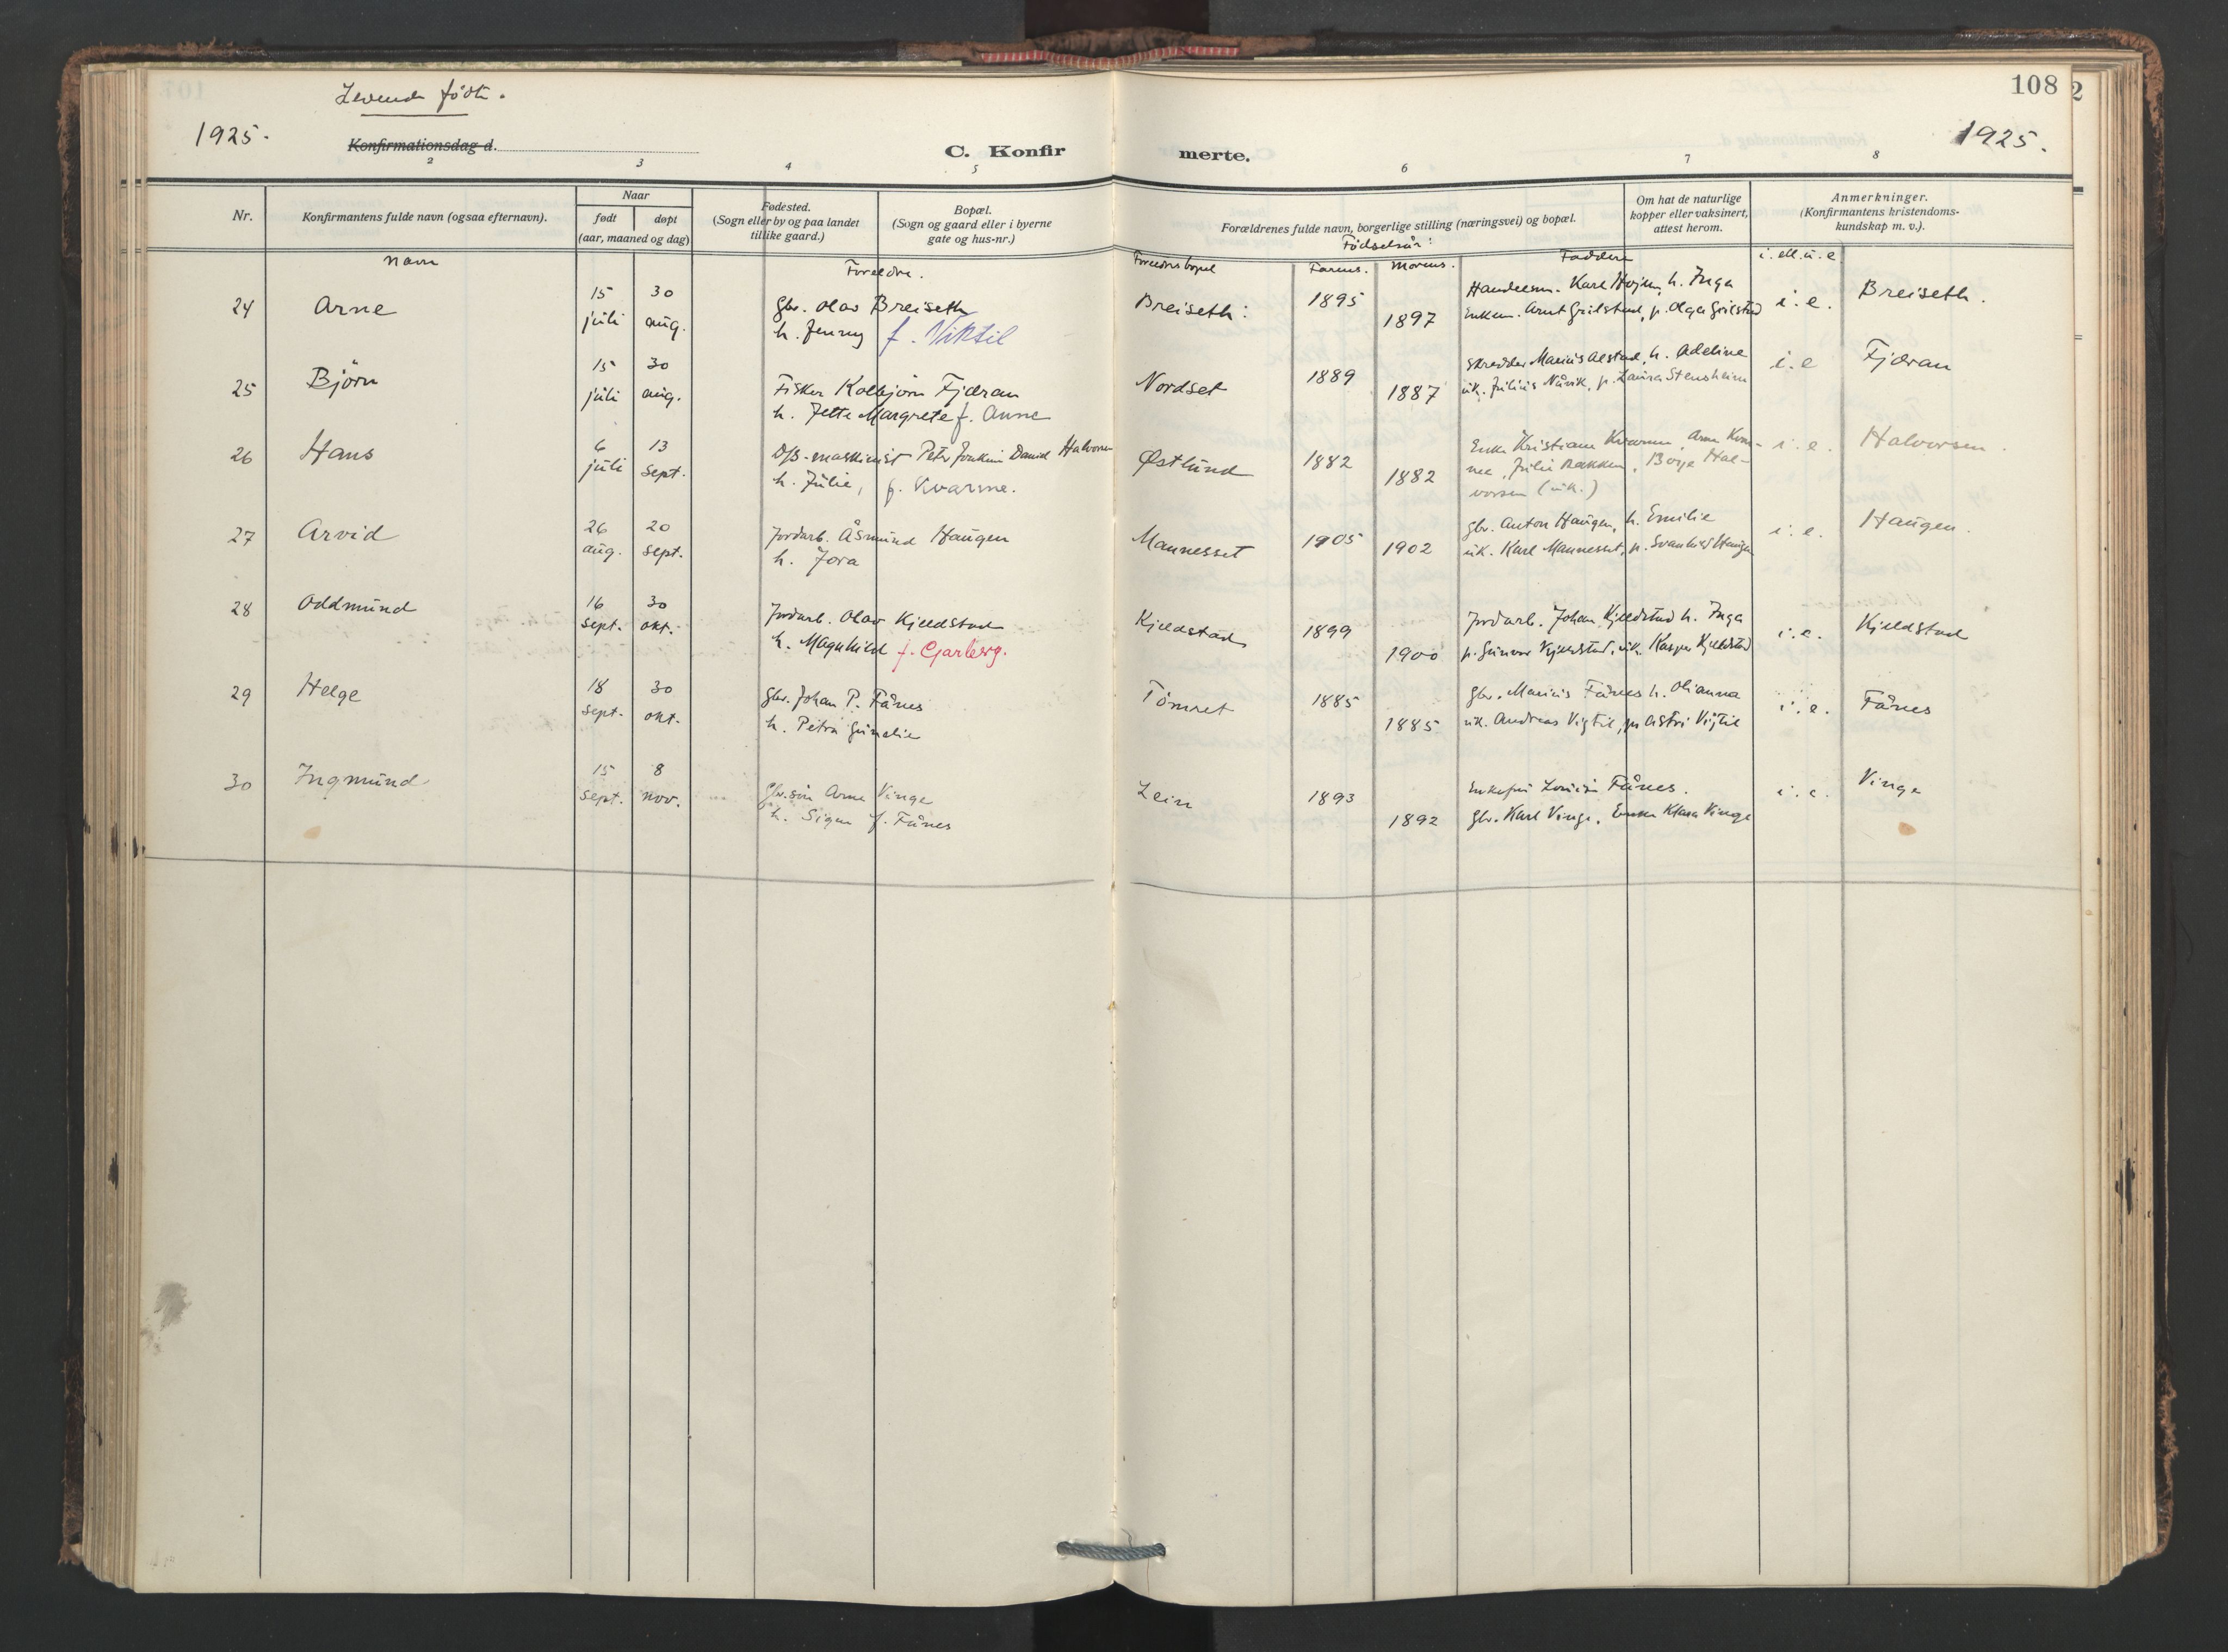 108
Levende födte.
1925.
1925.
Konfirmationsdag d.
C. Konfirmerte.
2 3 4 5 6 7 8
Nr.
Konfirmantens fulde navn (ogsaa efternavn).
Naar
født døpt
(aar, maaned og dag)
Fødested.
(Sogn eller by og paa landet
tillike gaard.)
Bopæl.
(Sogn og gaard eller i byerne
gate og hus-nr.)
Forældrenes fulde navn, borgerlige stilling (næringsvei) og bopæl.
Om hat de naturlige
kopper eller vaksinert,
attest herom.
Anmerkninger.
(Konfirmantens kristendoms-
kundskap m. v.).
Födselsår:
Navn Foreldre. Foreldres bopel Farens. Morens. Faddere i. ell. u. e.
24 Arne 15 juli 30 aug. Gbr. Olav Breiseth
h. Jenny f. Viktil
Breiseth: 1895 1897
Karl h. Inga
Arnt Grilstad, p. Olga Grilstad
i. e. Breiseth.
25 Björn 15 juli 30 aug. Fisker Kolbjörn Fjæran
h. Jette Margrete f. Aune
Nordset 1889 1887
Skredder Marius Alstad, h. Adeline
uk. Julius Nåvik, p. Laura Stensheim
i. e Fjæran
26 Hans 6 juli 13 sept. D/S-maskinist Peter Joakim Daniel Halvorsen
h. Julie, f. Kvarme.
Østlund 1882 1882
Enke Kristiane Kvarme, Arne Kvar-
me, Julie Bakken, Börje Hal-
vorsen (uk.)
i. e. Halvorsen.
27 Arvid 26 aug. 20 sept. Jordarb. Åsmund Haugen
h. Jora
Mannesset 1905 1902
gbr. Anton Haugen, h. Emilie
uk. Karl Mannesset, p. Svanhild Haugen
i. e. Haugen.
28 Oddmund 16 sept. 30 okt. Jordarb. Olav Kjeldstad
h. Magnhild f. Garberg.
Kjeldstad 1899 1900
Jordarb. Johan Kjeldstad h. Inga
p. Gunvor Kjeldstad, uk. Kasper Kjeldstad
i. e. Kjeldstad
29 Helge 18 sept. 30 okt. Gbr. Johan P. Fånes
h. Petra Gunelie
Tömret 1885 1885
gbr. Marius Fånes h. Olianna
uk. Andreas Vigtil, p. Astri Vigtil
i. e. Fånes
30 Ingmund 15 sept. 8 nov. Gbr.sön Arne Vinge
h. Signe f. Fånes
Lein 1893 1892
Enkefru Lovise Fånes.
gbr. Karl Vinge. Enke Klara Vinge
i. e. Vinge